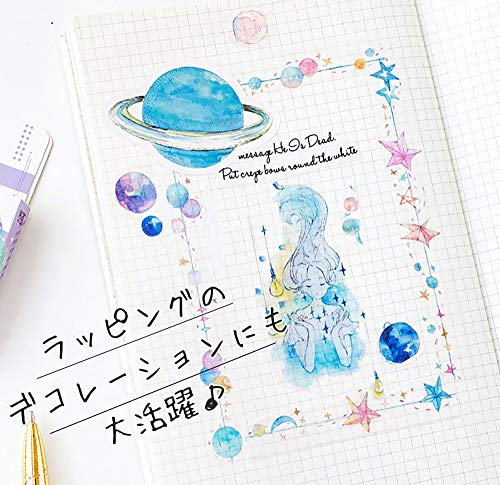 message He Is Dead.
Put crepe bows round the white
ラッピングの
デコレーションにも
大活躍♪